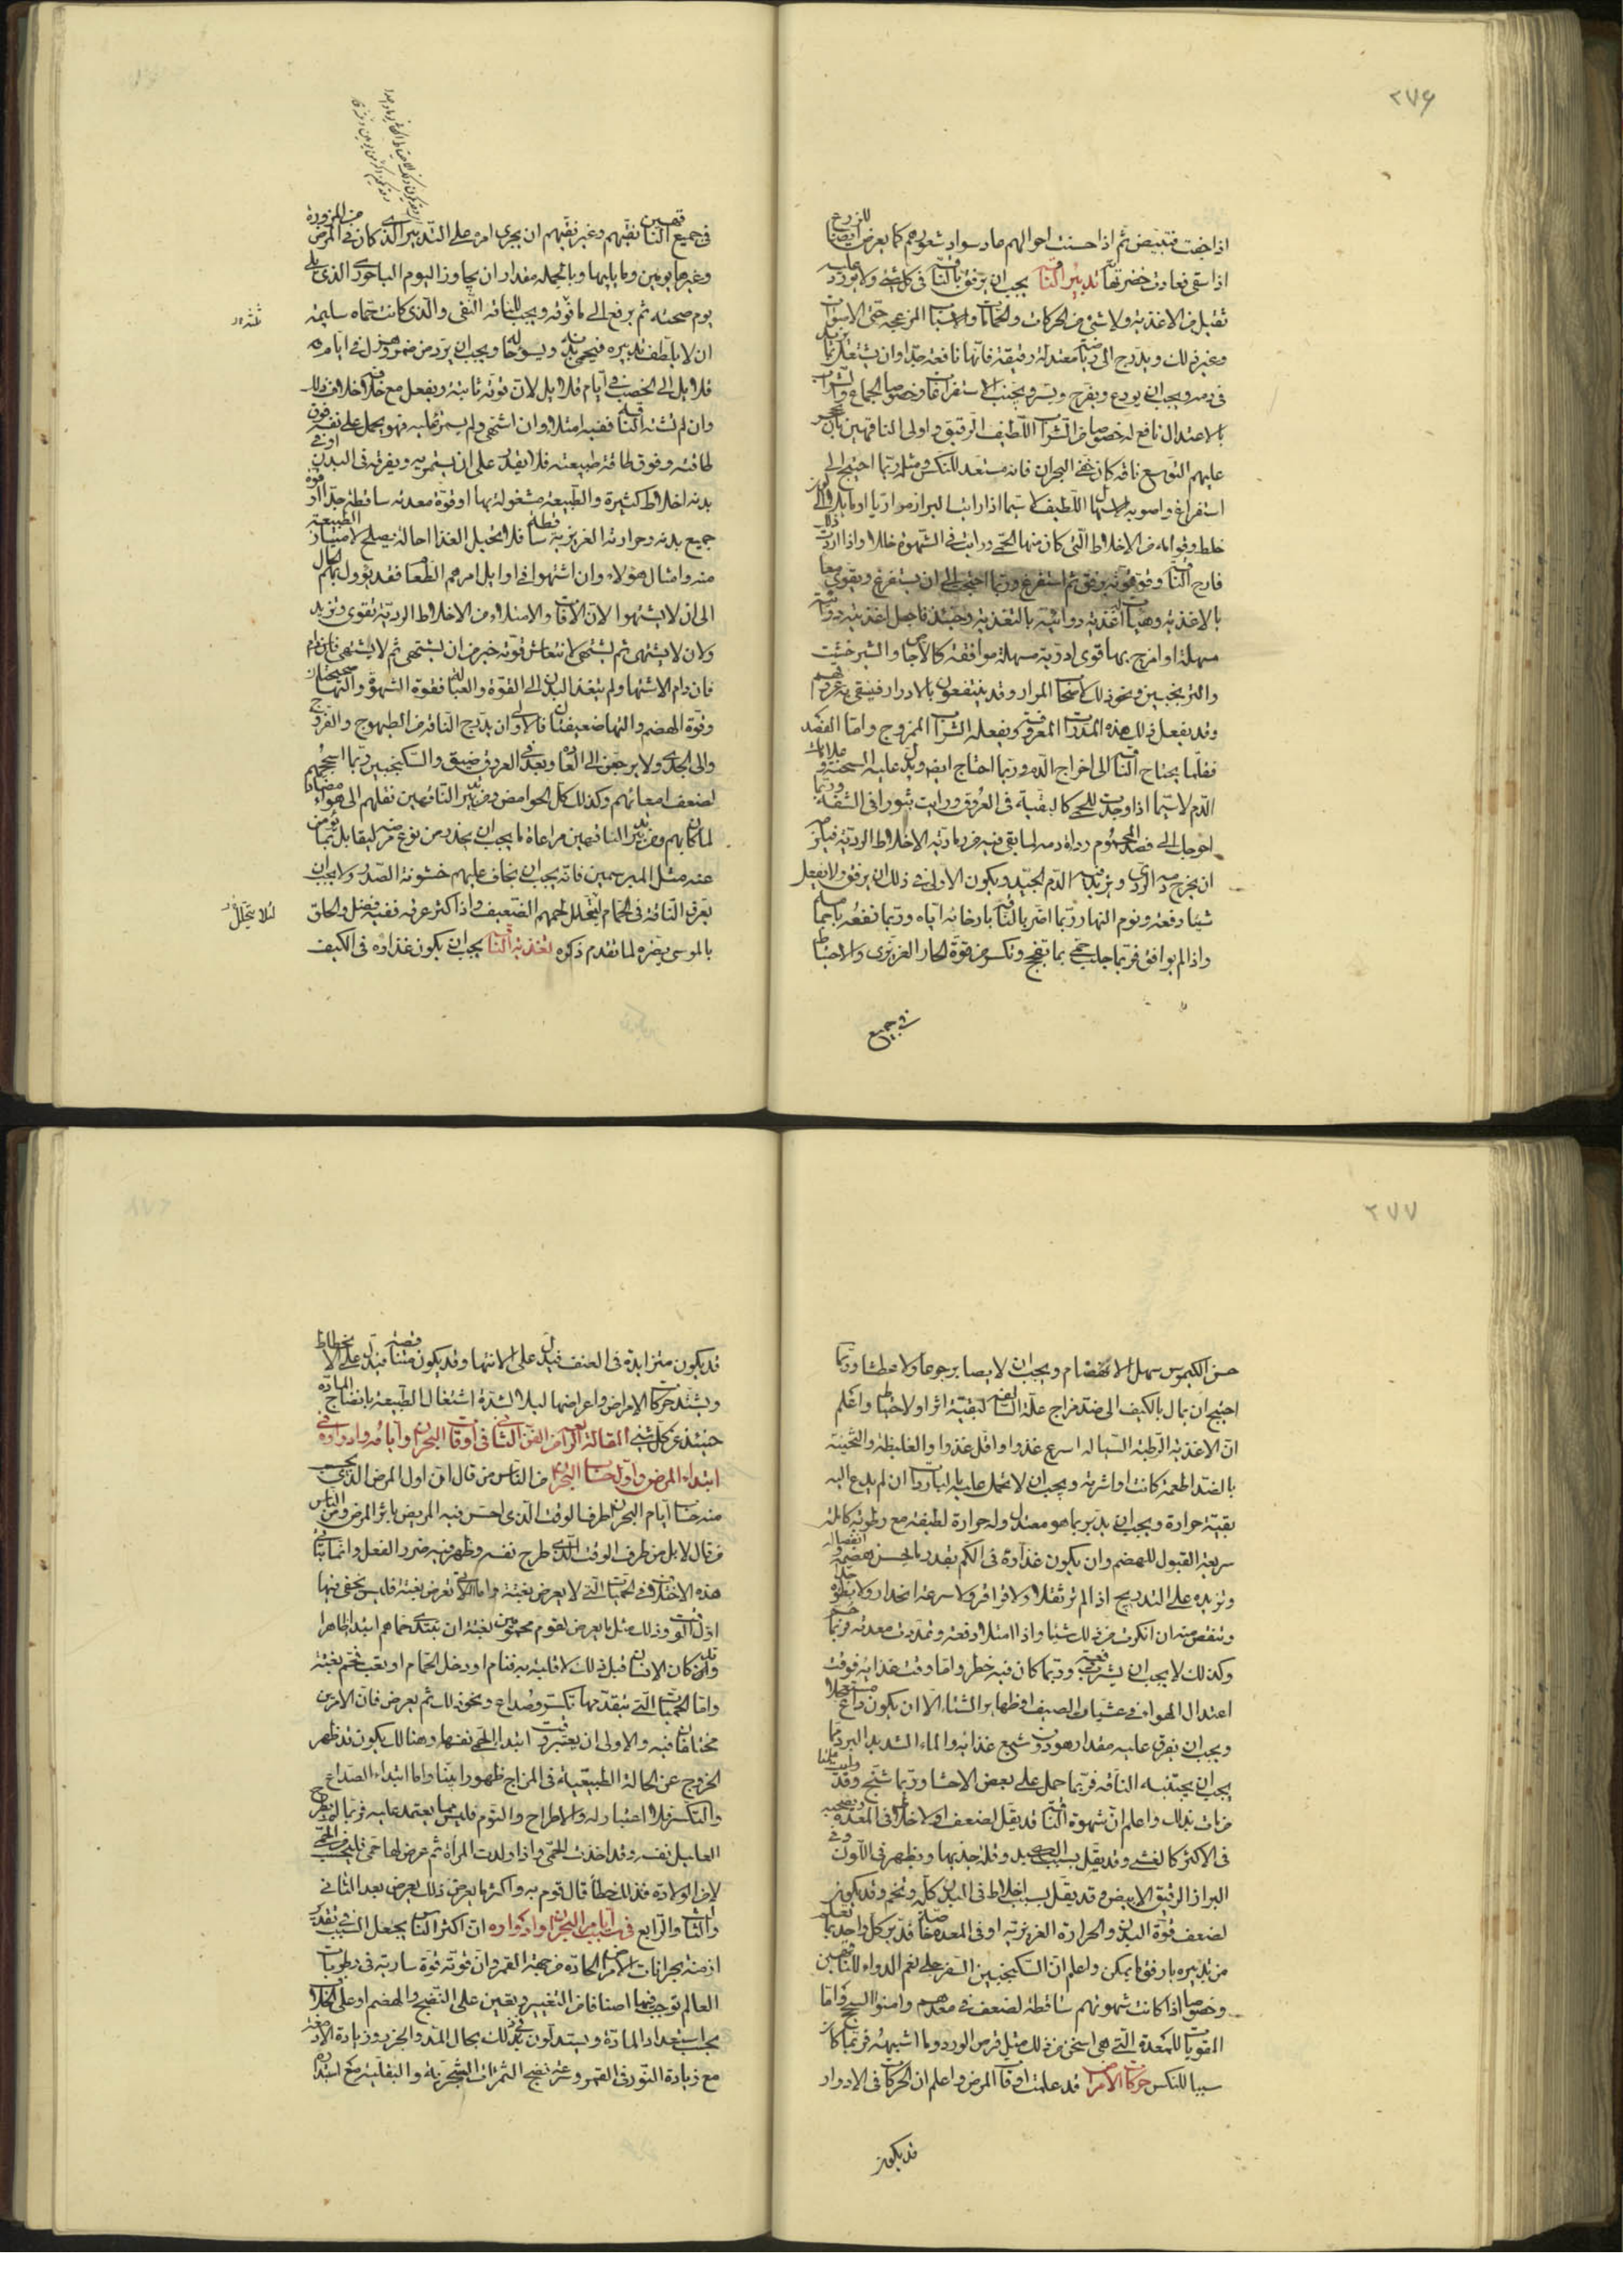 ٢٧٦
اذا جفت فتبيض ثم اذا حسنت احوالهم عاد سواد شعورهم كما يعرض ايضا للزرع
اذا سقى فعادت خضرته تدبير الناقه يجب ان يرفق بالناقه فى كل شئ ولا يورد عليه
ثقيل من الاغذية ولا شئ من الحركات والحمامات والاسباب المزعجة حتى الاصوات
وغير ذلك ويدرج الى رياضة معتدلة رقيقة فانها نافعة جدا وان يشتغل بما يزيد
فى دمه ويجب ان يودع ويفرح ويسر ويجنب الاستفراغات وخصوصا الجماع والشراب
بالاعتدال نافع له خصوصا من الشراب اللطيف الرقيق واولى الناقهين بان يحجر
عليهم التوسع ناقه كان خفى البحران فانه مستعد للنكس ومثله ربما احتيج الى
استفراغ واصوبه الاسهال اللطيف لا سيما اذا رايت البراز مراريا او مايلا الى لون
خلط وقوامه من الاخلاط التى كان منها الحمى ورايت فى الشهوة خللا واذا اردت ذلك
فارح الناقه وقو قوته برفق ثم استفرغ وربما احتجت الى ان يستفرغ ويقوى معا
بالاغذية وهيات اغذيته دوائية بالتغذية وحينئذ فاجعل اغذيته دوائية
مسهلة او امزج بها قوى ادوية مسهلة موافقة كالاجاص والشيرخشت
والترنجبين ونحو ذلك لاصحاب المرار وقد ينتفعون بالادرار فينقى به عروقهم
وقد يفعل ذلك هذه المدرات المعروفة ويفعله الشراب الممزوج واما الفصد
فقلما يحتاج الناقه الى اخراج الدم وربما احتاج ايضا ويدل عليه السحنة وعلامات
الدم لا سيما اذا وجدت للحمى كالبقية فى العروق ورايت بثورا فى الشفة وربما
احوجك الى فصد المحموم رداءة دمه لما بقى فيه من رمادية الاخلاط الردية فيلزم
ان يخرج دمه الردى ويزيد فيه الدم الجيد ويكون الاولى فى ذلك ان يرفق ولا يفعل
شيئا دفعة ونوم النهار ربما اضر بالناقه بارخائه اياه وربما نفعه باجمامه
واذا لم يوافق فربما جلب حمى بما يفجج ويكسر من قوة الحار الغريزى والاحتياط
فى جميع
فى جميع الناقهين نقيهم وغير نقيهم ان يجرى امره على التدبير الذى كان فى المرض من المزورة
وغيرها يومين وما يليها وبالجملة مقدار ان يجاوز اليوم الباحورى الذى يلى
يوم صحته ثم يرفع الى ما فوقه ويجب للناقه النقى والذى كانت حماه سليمة
ان لا يلطف تدبيره فيحمى بدنه ويسوء حاله ويجب ان يزد من ضمر وهزل فى ايام
قلايل الى الخصب فى ايام قلايل لان قوته ثابتة ويفعل مع خلافه خلاف ذلك
وان لم يشته الناقه ففيه امتلاء وان اشتهى ولم يسمن عليه فهو يحمل على نفسه فوق
طاقته وفوق طاقة طبيعته فلا يقدر على ان يستمريه ويفرقه فى البدن او فى
بدنه اخلاط كثيرة والطبيعة مشغولة بها او قوة معدته ساقطة جدا او قوة
جميع بدنه وحرارته الغريزية ساقطة فلا تحيل الغذا احالة يصلح لامتياز الطبيعة
منه وامثال هولاء وان اشتهوا فى اوايل امرهم الطعام فقد يؤول بهم الحال
الى ان لا يشتهوا لان الافات والامتلاء من الاخلاط الردية تقوى وتزيد
ولان لا يشتهى ثم يشتهى لانتعاش قوته خير من ان يشتهى ثم لا يشتهى فان دام
فان دام الاشتها ولم يتغذ البدن الى القوة والعبالة فقوة الشهوة والتها صحيحتان
وقوة الهضم والتها ضعيفتان فالاولى ان يدرج الناقه من الطيهوج والفروج
والى الجدى ولا يرجعن الى العادة وبعد فى العروق ضيق والسكنجبين ربما اسحجهم
لضعف امعائهم وكذلك كل الحوامض ومن تدبير الناقهين نقلهم الى هواء مضاد
لما كان بهم ومن تدبير الناقهين مراعاة ما يجب ان يحذر من نوع مرضه ليقابل بما يؤمن
عنه مثل المبرسمين فانه يجب ان يخاف عليهم خشونة الصدر ولا يجب ان
يعرق الناقه فى الحمام ليتحلل لحمهم الضعيف واذا كثر عرقه ففيه فضل والحلق
بالموسى يضره لما تقدم ذكره تغذية الناقه يجب ان يكون غذاؤه فى الكيف
لئلا يتحلل
٢٧٧
حسن الكيموس سهل الانهضام ويجب ان لا يصابر جوعا ولا عطشا وربما
احتيج ان يمال بالكيف الى ضد مزاج علة السالفة لبقية اثر او لاحتياط واعلم
ان الاغذية الرطبة السيالة اسرع غذوا واقل غذوا والغليظة والثخينة
بالضد اطعمة كانت او اشربة ويجب ان لا تحمل عليه بالباردات ان لم يدع اليه
بقية حرارة ويجب ان يدبر بما هو معتدل وله حرارة لطيفة مع رطوبة كاملة
سريعة القبول للهضم وان يكون غذاؤه فى الكم بقدر ما يحسن هضمه وانفصاله
وتزيده على التدريج اذا لم تر ثقلا ولا قراقر ولا سرعة انحدار ولا بطوء
وتنقص منه ان انكرت من ذلك شيئا واذا امتلا دفعة وتمددت معدته فربما حم
وكذلك لا يجب ان يشرب دفعة وربما كان فيه خطر واما وقت غذائه فوقت
اعتدال الهواء فى عشيات الصيف او ظهاير الشتاء الا ان يكون داع مستعجلا
ويجب ان يفرق عليه مقدار هو دون شبع غذائه والماء الشديد البرد مما
يجب ان يجتنبه الناقه فربما حمل على بعض الاحشا وربما شنج وقد رايت من
مات بذلك واعلم ان شهوة الناقه قد يقل لضعف او لاخلاط فى المعدة
فى الاكثر كالغشى وقد يقل بسبب الكبد وقلة جذبها ويظهر فى اللون وفى
البراز الرقيق الابيض وقد يقل بسبب اخلاط فى البدن كله وتخم وقد يكون
لضعف قوة البدن والحرارة الغريزية او فى المعدة خاصة فدبر كل واحد بما تعلم
من تدبيره بارفق ما يمكن واعلم ان السكنجبين السفرجلى نعم الدواء للناقهين
وخصوصا اذا كانت شهوتهم ساقطة لضعف فى معدهم وامنوا السحج واما
المقويات للمعدة التى هى اسخن من ذلك مثل قرص الورد وما اشبهه فربما كان
سببا للنكس حركات الامراض قد علمت اوقات المرض واعلم ان الحركات فى الادوار
قد يكون
قد يكون متزايدة فى العنف فيدل على الانتها وقد يكون متناقصة فيدل على الانحطاط
ويشتد حركات الامراض واعراضها ليلا لشدة اشتغال الطبيعة بانضاج المادة
حينئذ عن كل شئ المقالة الثانية من الفن الثانى فى اوقات البحران وايامه وادواره فى
ابتداء المرض واول حساب البحران من الناس من قال ان اول المرض الذى يحسب
منه حساب ايام البحران طرف الوقت الذى احس فيه المريض باثر المرض ومن الناس
من قال لا بل من طرف الوقت الذى طرح نفسه وظهر فيه ضرر الفعل وانما يتاتى
هذه الاختلاف فى الحميات التى لا يعرض بغتة واما التى تعرض بغتة فليس يخفى فيها
اول الوقت وذلك مثل ما يعرض لقوم محمومين بغتة ان يبتدى حماهم ابتداء ظاهرا
ولقد كان الانسان قبل ذلك لا قلبة به فنام او دخل الحمام او تعب فحم بغتة
واما الحميات التى يتقدمها تكسر وصداع ونحو ذلك ثم يعرض فان الامرين
مختلفان فيه والاولى ان يعتبر وقت ابتداء الحمى نفسها وهنالك يكون قد ظهر
الخروج عن الحالة الطبيعية فى المزاج ظهورا بينا واما ابتداء الصداع
والتكسر فلا اعتبار له والاطراح والنوم فليس مما يعتمد عليه فربما لم يطرح
العليل نفسه وقد اخذت الحمى واذا ولدت المراة ثم عرض لها حمى فليحسب من الحمى
لا من الولادة فذلك خطا قال قوم به واكثر ما يعرض ذلك يعرض بعد الثانى
والثالث والرابع فى سبب ايام البحران وادواره ان اكثر الناس يجعل السبب فى تقدير
ازمنة بحرانات الامراض الحادة من جهة القمر وان قوته قوة سارية فى رطوبات
العالم توجب فيها اصنافا من التغيير ويعين على النضج والهضم او على الخلاف
بحسب استعداد المادة ويستدلون فى ذلك بحال المد والجزر وزيادة الادمغة
مع زيادة النور فى القمر وسرعة نضج الثمرات الشجرية والبقلية مع ابتداره